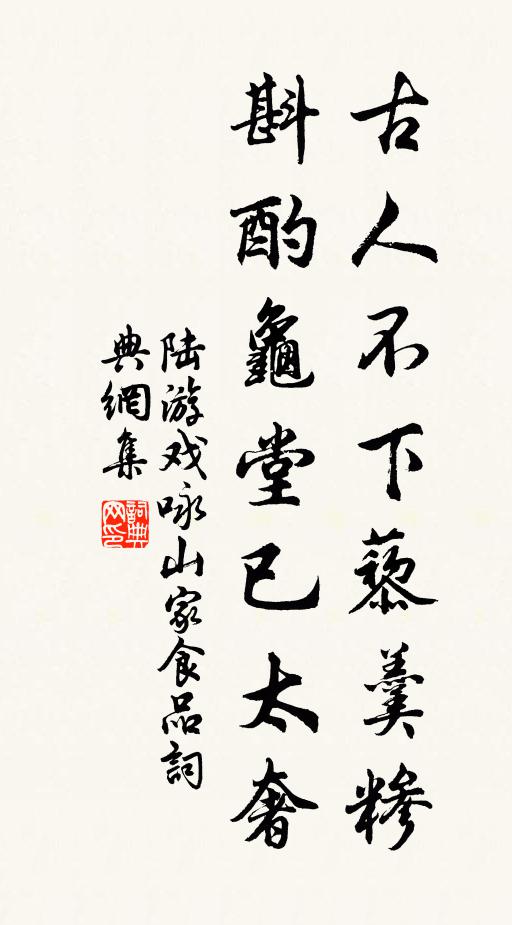 古人不下藜羹糁
斟酌龜堂已太奢
陆游戏咏山家食品詞
典網集
詞典網印